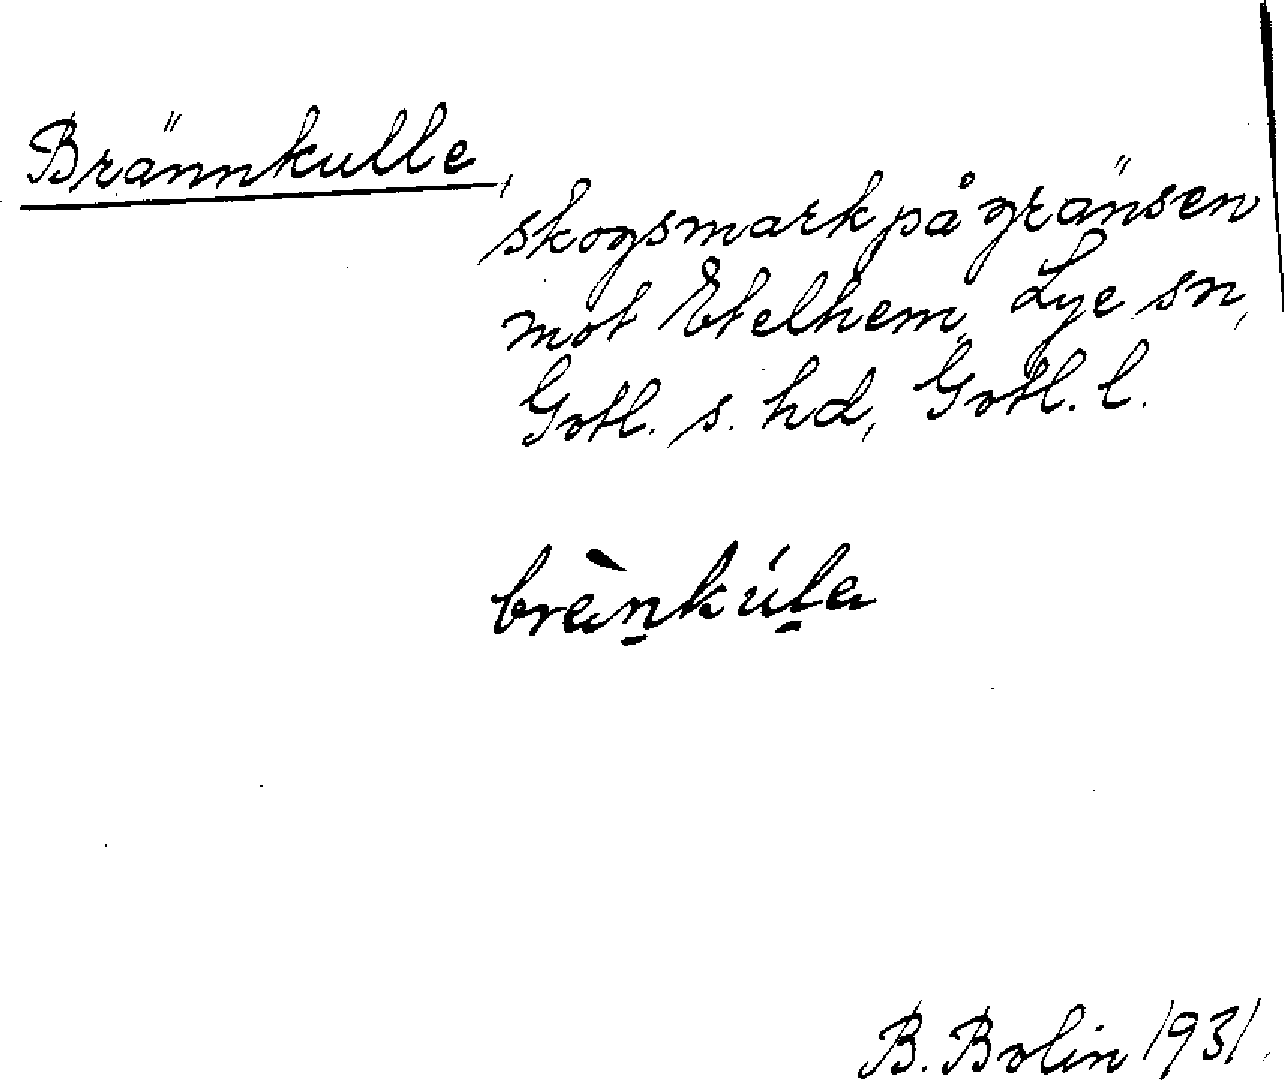 Brännkulle,
skogsmark på gränsen
mot Etelhem, Lye sn,
Gotl. s. hd, Gotl. l.
bràn̠kúl̠a
B. Bolin 1931.